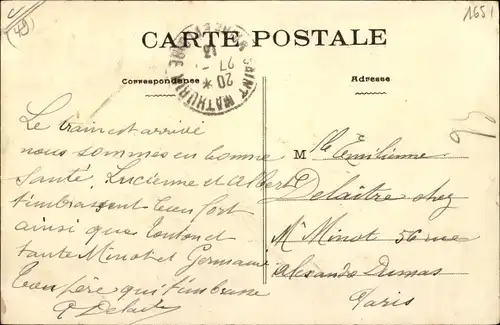 (49)
1651
CARTE POSTALE
SAINT MATHURIN
20 *
27 -
13
Correspondance
Adresse
Le train est arrivé
nous sommes en bonne
santé, Lucienne et Albert
t'imbrassent bien fort
ainsi que tonton et
tante Minot et Germaine
Ton père qui t'imbrasse
Delaitre
M lle Emilienne
Delaitre chez
Mr Minot 56 rue
Alexandre Dumas
Paris